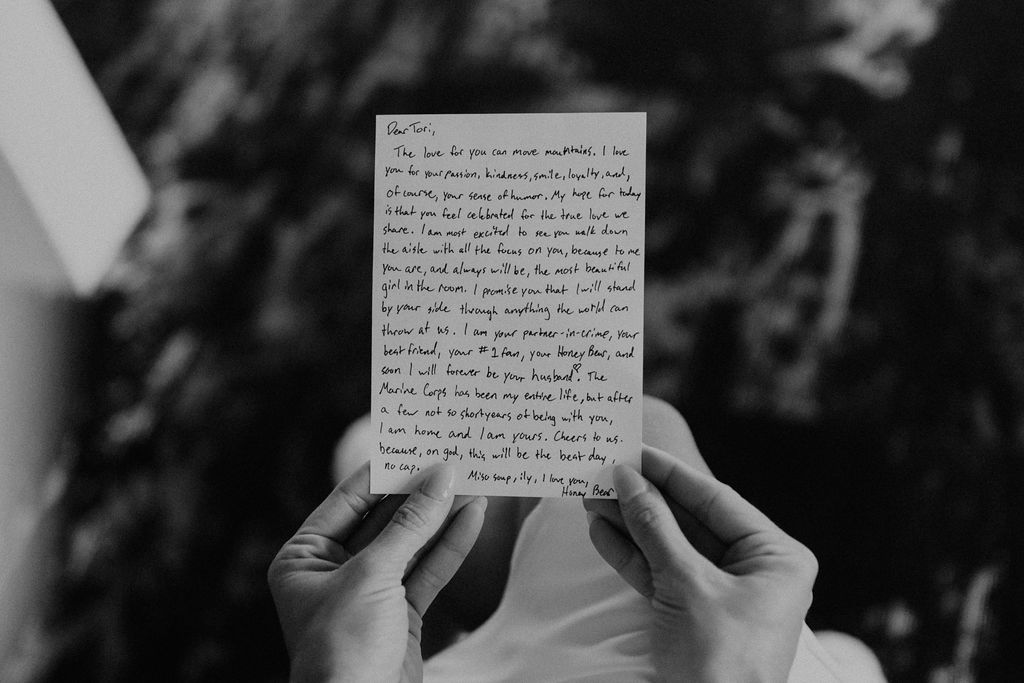 Dear Tori,
The love for you can move mountains. I love
you for your passion, kindness, smile, loyalty, and,
of course, your sense of humor. My hope for today
is that you feel celebrated for the true love we
share. I am most excited to see you walk down
the aisle with all the focus on you, because to me
you are, and always will be, the most beautiful
girl in the room. I promise you that I will stand
by your side through anything the world can
throw at us. I am your partner-in-crime, your
best friend, your #1 fan, your Honey Bear, and
soon I will forever be your husband♡. The
Marine Corps has been my entire life, but after
a few not so short years of being with you,
I am home and I am yours. Cheers to us.
because, on god, this will be the best day,
no cap.
Miso soup, ily, I love you,
Honey Bear